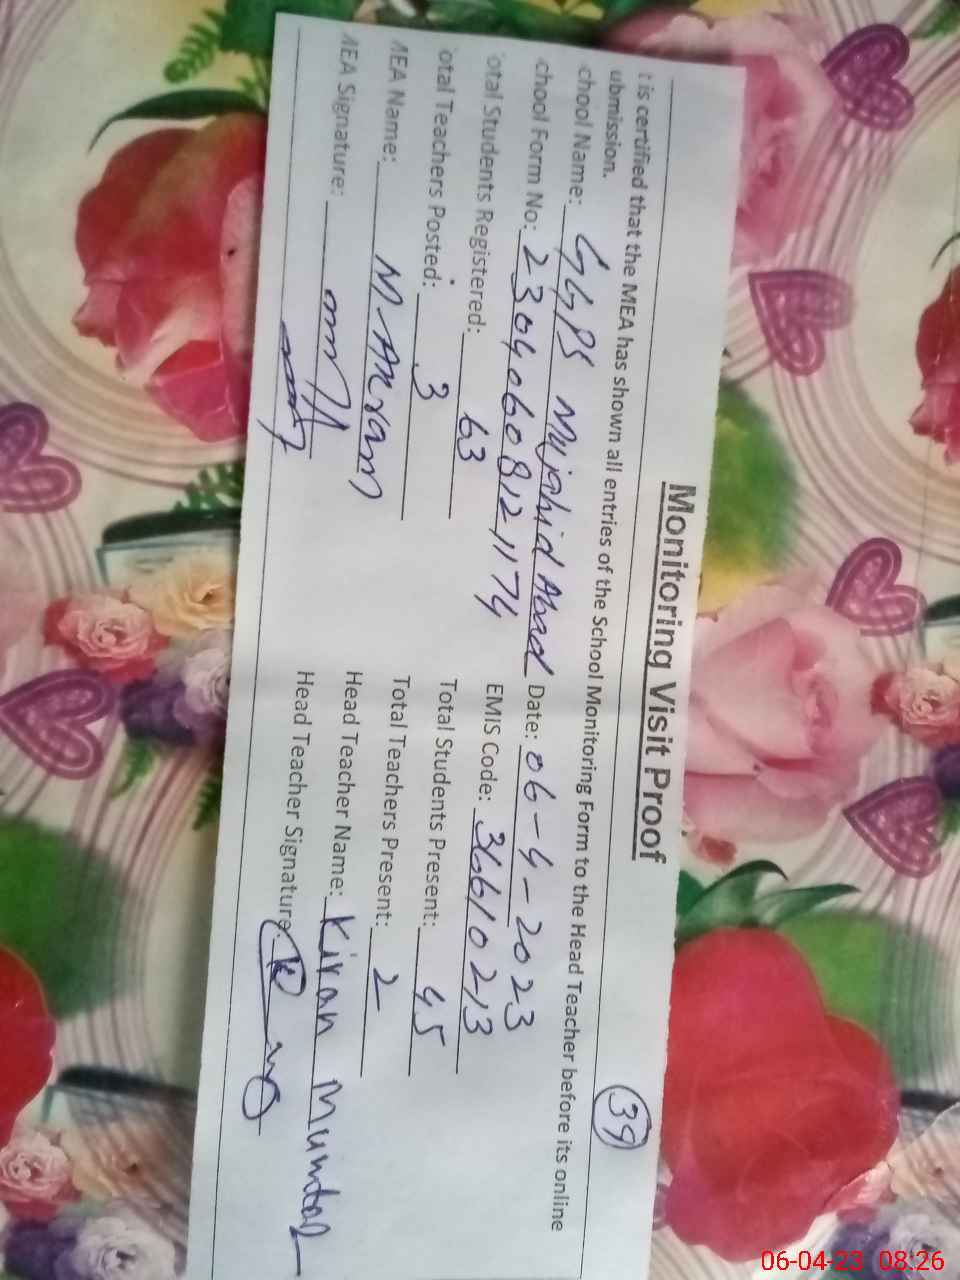 Monitoring Visit Proof
39
t is certified that the MEA has shown all entries of the School Monitoring Form to the Head Teacher before its online
ubmission.
chool Name: GGPS Mujahid Abad Date: 06-4-2023
chool Form No: 23040608121174 EMIS Code: 36610213
otal Students Registered: 63 Total Students Present: 45
otal Teachers Posted: 3 Total Teachers Present: 2
MEA Name: M-Akram Head Teacher Name: Kiran Mumtaz
MEA Signature: Head Teacher Signature:
06-04-23 08:26